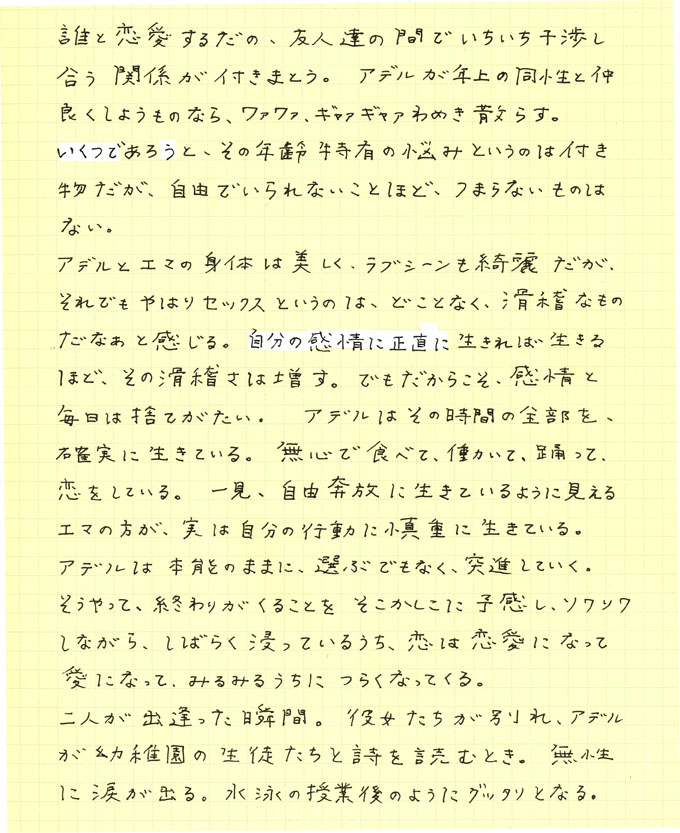 誰と恋愛するだの、友人達の間でいちいち干渉し
合う関係が付きまとう。 アデルが年上の同性と仲
良くしようものなら、ワァワァ、ギャァギャァわめき散らす。
いくつであろうと、その年齢特有の悩みというのは付き
物だが、自由でいられないことほど、つまらないものは
ない。
アデルとエマの身体は美しく、ラブシーンも綺麗だが、
それでもやはりセックスというのは、どことなく、滑稽なもの
だなぁと感じる。自分の感情に正直に生きれば生きる
ほど、その滑稽さは増す。でもだからこそ、感情と
毎日は捨てがたい。 アデルはその時間の全部を、
確実に生きている。 無心で食べて、働いて、踊って、
恋をしている。 一見、自由奔放に生きているように見える
エマの方が、実は自分の行動に慎重に生きている。
アデルは本能のままに、選ぶでもなく、突進していく。
そうやって、終わりがくることをそこかしこに予感し、ソワソワ
しながら、しばらく浸っているうち、恋は恋愛になって
愛になって、みるみるうちにつらくなってくる。
二人が出逢った瞬間。 彼女たちが別れ、アデル
が幼稚園の生徒たちと詩を読むとき。 無性
に涙が出る。水泳の授業後のようにグッタリとなる。